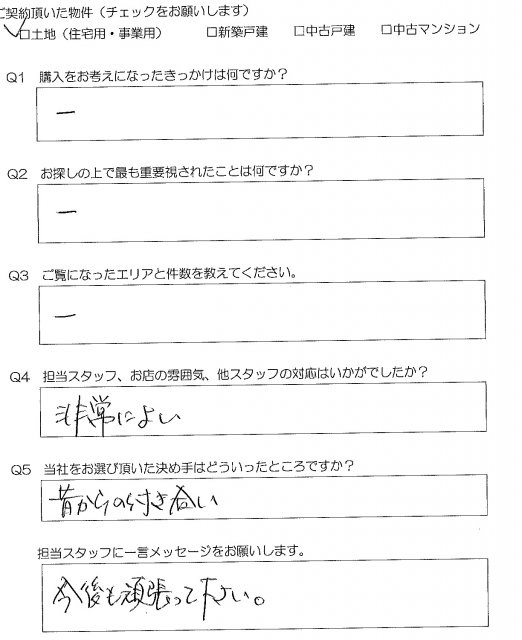 ご契約頂いた物件（チェックをお願いします）
☑土地（住宅用・事業用） □新築戸建 □中古戸建 □中古マンション
Q1 購入をお考えになったきっかけは何ですか？
ー
Q2 お探しの上で最も重要視されたことは何ですか？
ー
Q3 ご覧になったエリアと件数を教えてください。
ー
Q4 担当スタッフ、お店の雰囲気、他スタッフの対応はいかがでしたか？
非常によい
Q5 当社をお選び頂いた決め手はどういったところですか？
昔からの付き合い
担当スタッフに一言メッセージをお願いします。
今後も頑張って下さい。